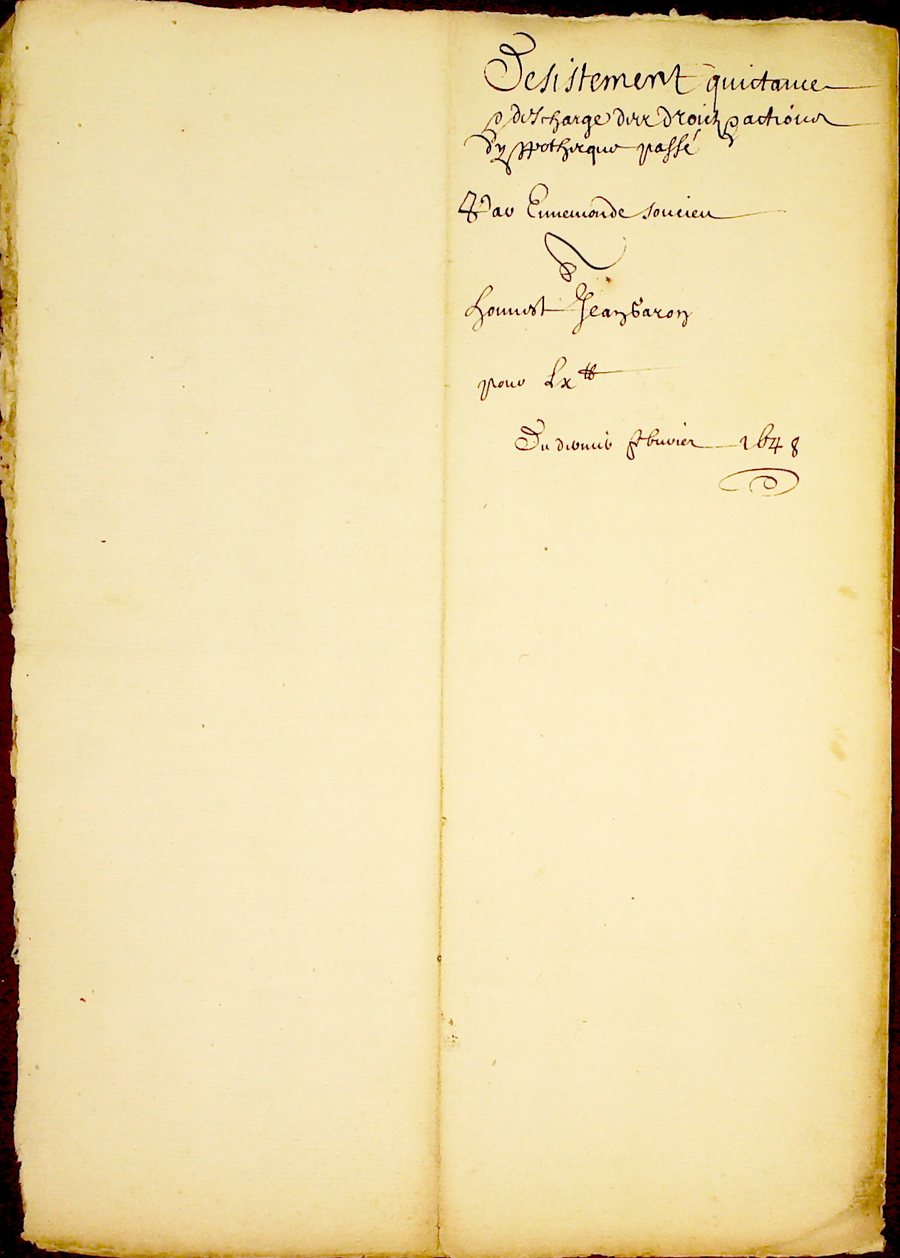 Desistement quictance
& descharge des droictz & actions
d'yppotheque passé
Par Ennemonde Soucieu
A
honnest Jean Baron
pour Lx ₶
Du dernier febvrier 1648